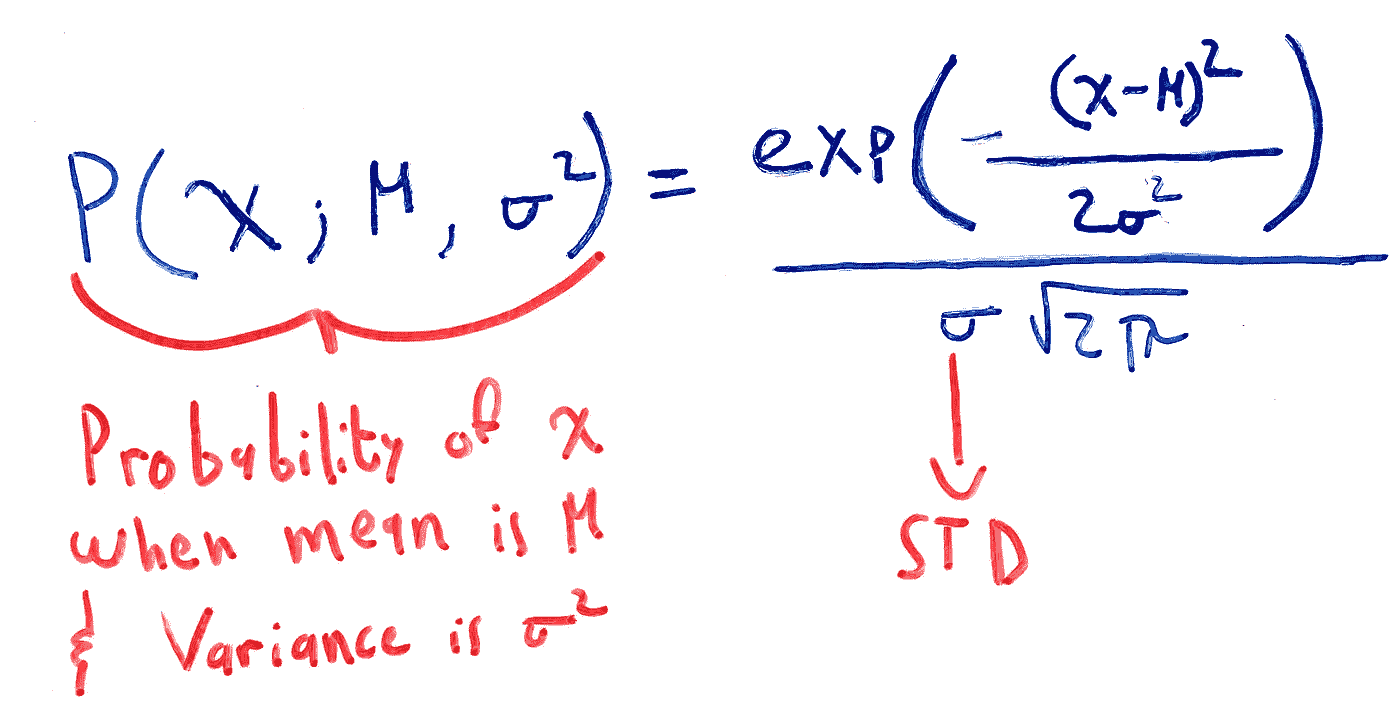 P(x; μ, σ²) = exp(-(x-μ)²/2σ²) / σ√2π
Probability of x
when mean is μ
& Variance is σ²
STD